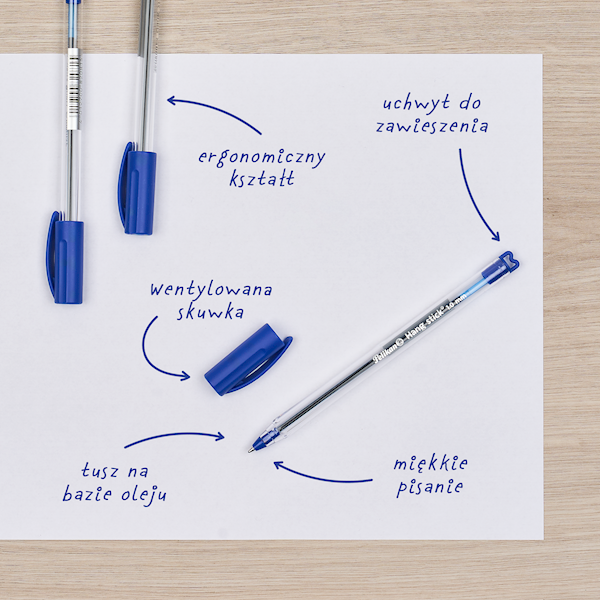 uchwyt do
zawieszenia
ergonomiczny
kształt
wentylowana
skuwka
Pelikan Hang-stick 1.0 mm
tusz na
bazie oleju
miękkie
pisanie